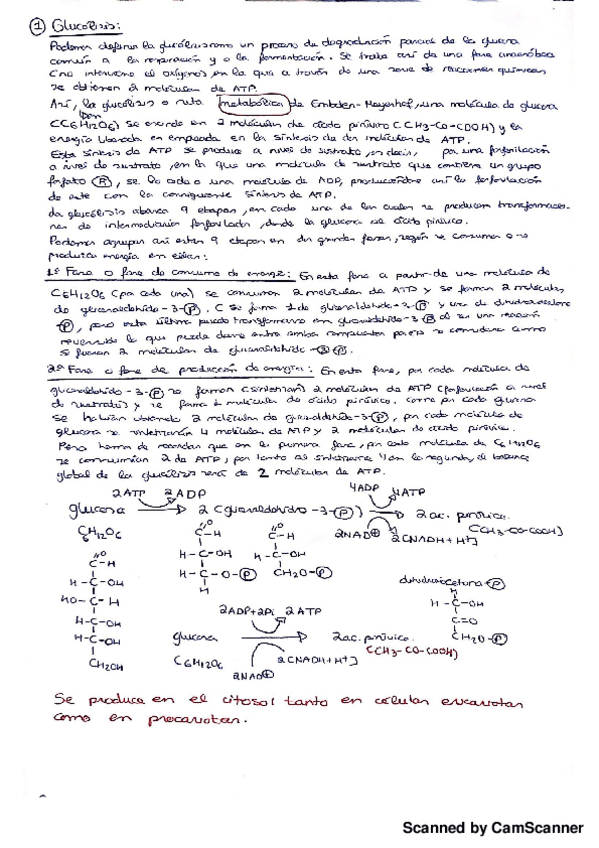 ① Glucólisis:
Podemos definir la glucólisis como un proceso de degradación parcial de la glucosa
común a la respiración y a la fermentación. Se trata así de una fase anaeróbica
(no interviene el oxígeno) en la que a través de una serie de reacciones químicas
se obtienen 2 moléculas de ATP.
Así, la glucólisis o ruta metabólica de Embden-Meyerhof, una molécula de glucosa
(C6H12O6) se escinde en 2 moléculas de ácido pirúvico (CH3-CO-COOH) y la
energía liberada en empleada en la síntesis de dos moléculas de ATP.
Esta síntesis de ATP se produce a nivel de sustrato, es decir, por una fosforilación
a nivel de sustrato, en la que una molécula de sustrato que contiene un grupo
fosfato Ⓟ, se lo cede a una molécula de ADP, produciéndose así la fosforilación
de este con la consiguiente síntesis de ATP.
La glucólisis abarca 9 etapas, en cada una de las cuales se producen transformacio-
nes de intermediarios fosforilados, desde la glucosa al ácido pirúvico.
Podemos agrupar así estas 9 etapas en dos grandes fases, según se consuma o se
produzca energía en ellas:
1ª Fase o fase de consumo de energía: En esta fase a partir de una molécula de
C6H12O6 (por cada una) se consumen 2 moléculas de ATP y se forman 2 moléculas
de gliceraldehído-3-Ⓟ. (Se forma 1 de gliceraldehído-3-Ⓟ y una de dihidroxiacetona
Ⓟ, pero esta última puede transformarse en gliceraldehído-3-Ⓟ en una reacción
reversible que puede darse entre ambos compuestos por se considera como
si fueran 2 moléculas de gliceraldehído-3-Ⓟ.
2ª Fase o fase de producción de energía: En esta fase, por cada molécula de
gliceraldehído-3-Ⓟ se forman (sintetizan) 2 moléculas de ATP (fosforilación a nivel
de sustrato) y se forma 1 molécula de ácido pirúvico. Como por cada glucosa
se habían obtenido 2 moléculas de gliceraldehído-3-Ⓟ, por cada molécula de
glucosa se sintetizarán 4 moléculas de ATP y 2 moléculas de ácido pirúvico.
Pero hemos de recordar que en la primera fase, por cada molécula de C6H12O6
se consumían 2 de ATP, por tanto al sintetizarse 4 en la segunda, el balance
global de la glucólisis será de 2 moléculas de ATP.
2ATP 2ADP 4ADP 4ATP
glucosa 2 (gliceraldehído-3-Ⓟ) 2 ac. pirúvico.
C6H12O6 2NAD⊕ 2[NADH+H+] (CH3-CO-COOH)
O O
C-H C-H C-H
H-C-OH H-C-OH H-C-OH
HO-C-H H-C-O-Ⓟ CH2O-Ⓟ
H-C-OH H
H-C-OH
CH2OH
dihidroxiacetona-Ⓟ
H
H-C-OH
C=O
CH2O-Ⓟ
2ADP+2Pi 2ATP
glucosa 2ac. pirúvico.
C6H12O6 2NAD⊕ 2[NADH+H+] (CH3-CO-COOH)
Se produce en el citosol tanto en células eucariotas
como en procariotas.
Scanned by CamScanner